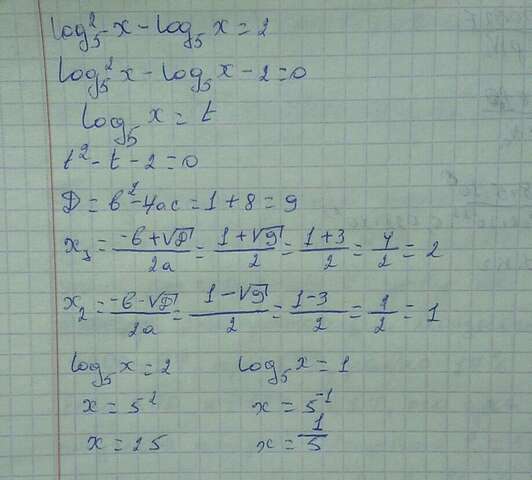 log₅² x - log₅ x = 2
log₅² x - log₅ x - 2 = 0
log₅ x = t
t² - t - 2 = 0
D = b² - 4ac = 1 + 8 = 9
x₁ = (-b + √D)/2a = (1 + √9)/2 = (1 + 3)/2 = 4/2 = 2
x₂ = (-b - √D)/2a = (1 - √9)/2 = (1 - 3)/2 = 2/2 = 1
log₅ x = 2 log₅ x = 1
x = 5² x = 5⁻¹
x = 25 x = 1/5